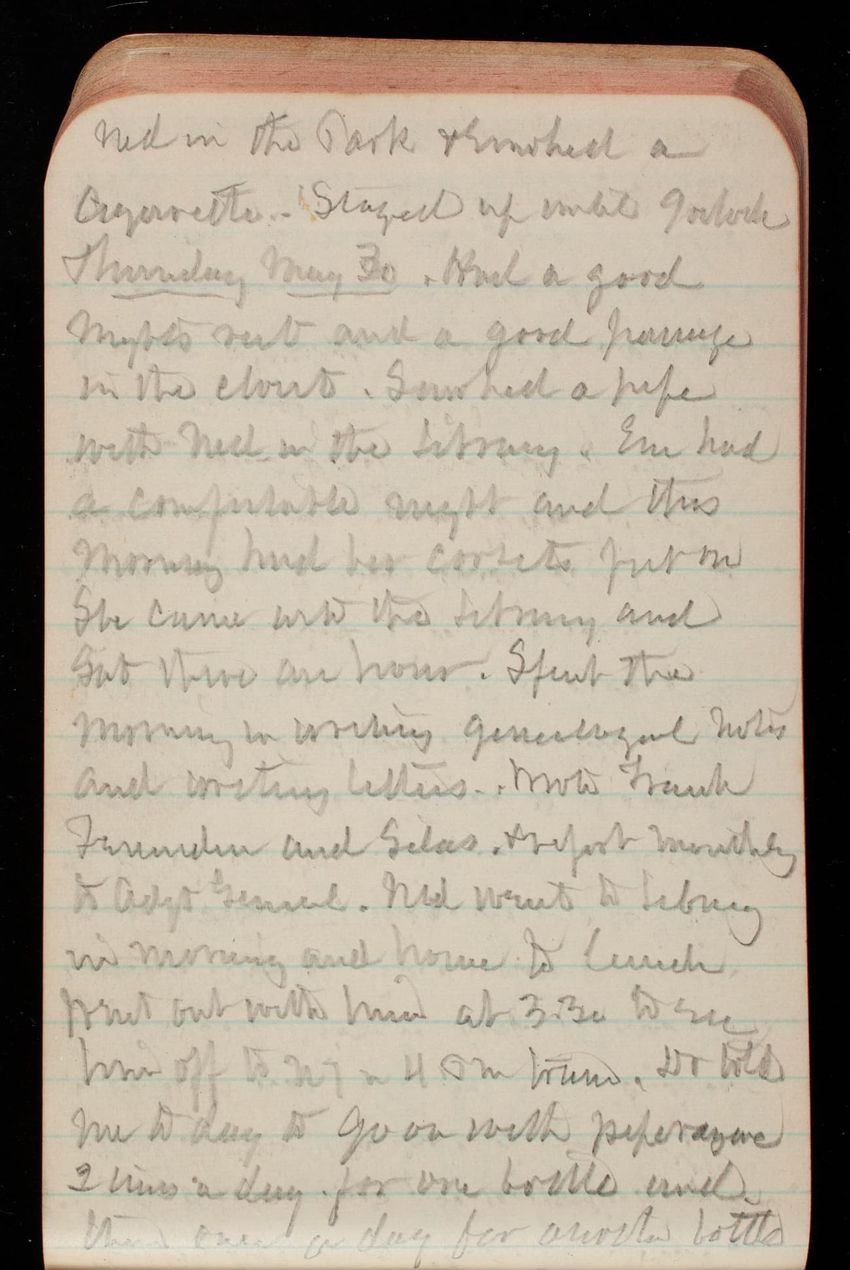 Ned in the Park & smoked a
Cigarette. Stayed up until 9 oclock
Thursday May 30. Had a good
nights rest and a good passage
in the closet. Smoked a pipe
with Ned in the Library. Em had
a comfortable night and this
morning had her corsets put on
She came into the Library and
sat there an hour. Spent the
morning in writing genealogical notes
and writing letters. Wrote Frank
and Silas. & report monthly
to Adjt General. Ned went to Library
in morning and home to lunch
Went out with him at 3.30 to see
him off to NY in 4 Pm train. Dr told
me to day to go on with peperazine
2 times a day for one bottle and
then once a day for another bottle